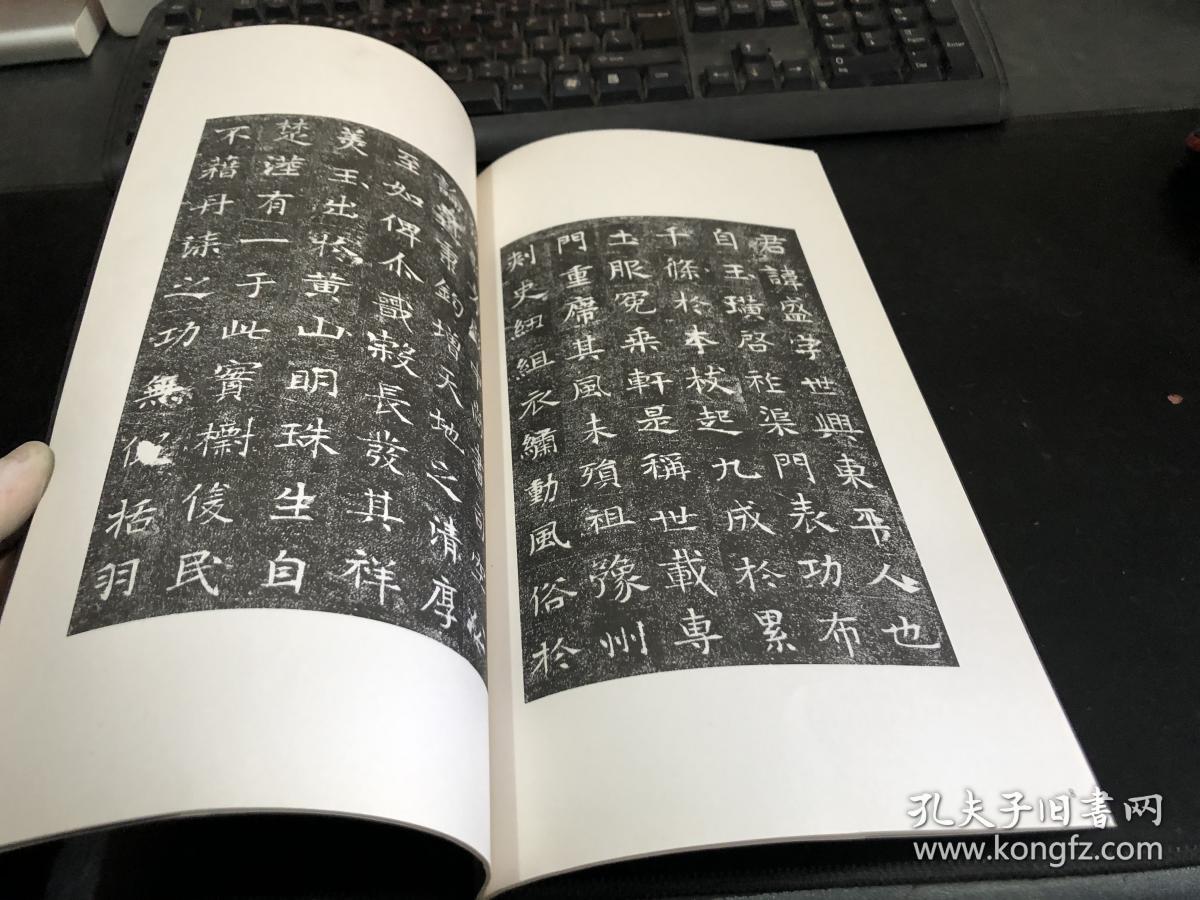 君諱盛字世興東平人也
自玉璜啓祚渠門表功布
千條於本枝起九成於累
土服冕乘軒是稱世載專
門重席其風未殞祖豫州
刺史紐組衣繡動風俗於
秉鈞增天地之清厚
至如俾尒戩穀長發其祥
美玉出於黃山明珠生自
楚澨有一于此實樹俊民
不藉丹漆之功無假括羽
孔夫子旧书网
www.kongfz.com